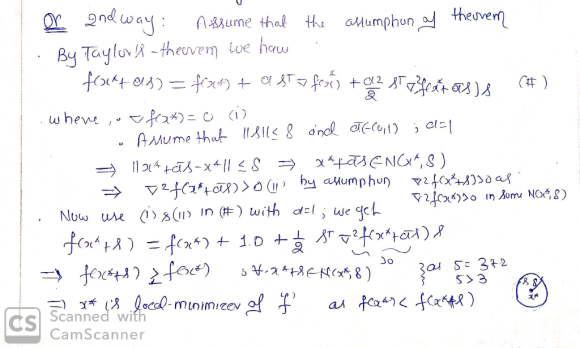 Or 2nd way: Assume that the assumption of theorem
· By Taylor's-theorem we have
f(x*+αs) = f(x*) + α sᵀ∇f(x*) + α²/2 sᵀ∇²f(x*+ᾱs)s (#)
· where, · ∇f(x*) = 0 (i)
· Assume that ||s|| ≤ δ and ᾱ∈(0,1) ; α=1
⇒ ||x*+ᾱs-x*|| ≤ δ ⇒ x*+ᾱs∈N(x*,δ)
⇒ ∇²f(x*+ᾱs)>0 (ii) by assumption ∇²f(x*+s)>0 as
∇²f(x*)>0 in some N(x*,δ)
· Now use (i) & (ii) in (#) with α=1, we get
f(x*+s) = f(x*) + 1.0 + 1/2 sᵀ∇²f(x*+ᾱs)s
≥0
⇒ f(x*+s) ≥ f(x*) , ∀ x*+s∈N(x*,δ) as 5=3+2
5>3
⇒ x* is local-minimizer of 'f' as f(x*) < f(x*+s)
CS Scanned with
CamScanner